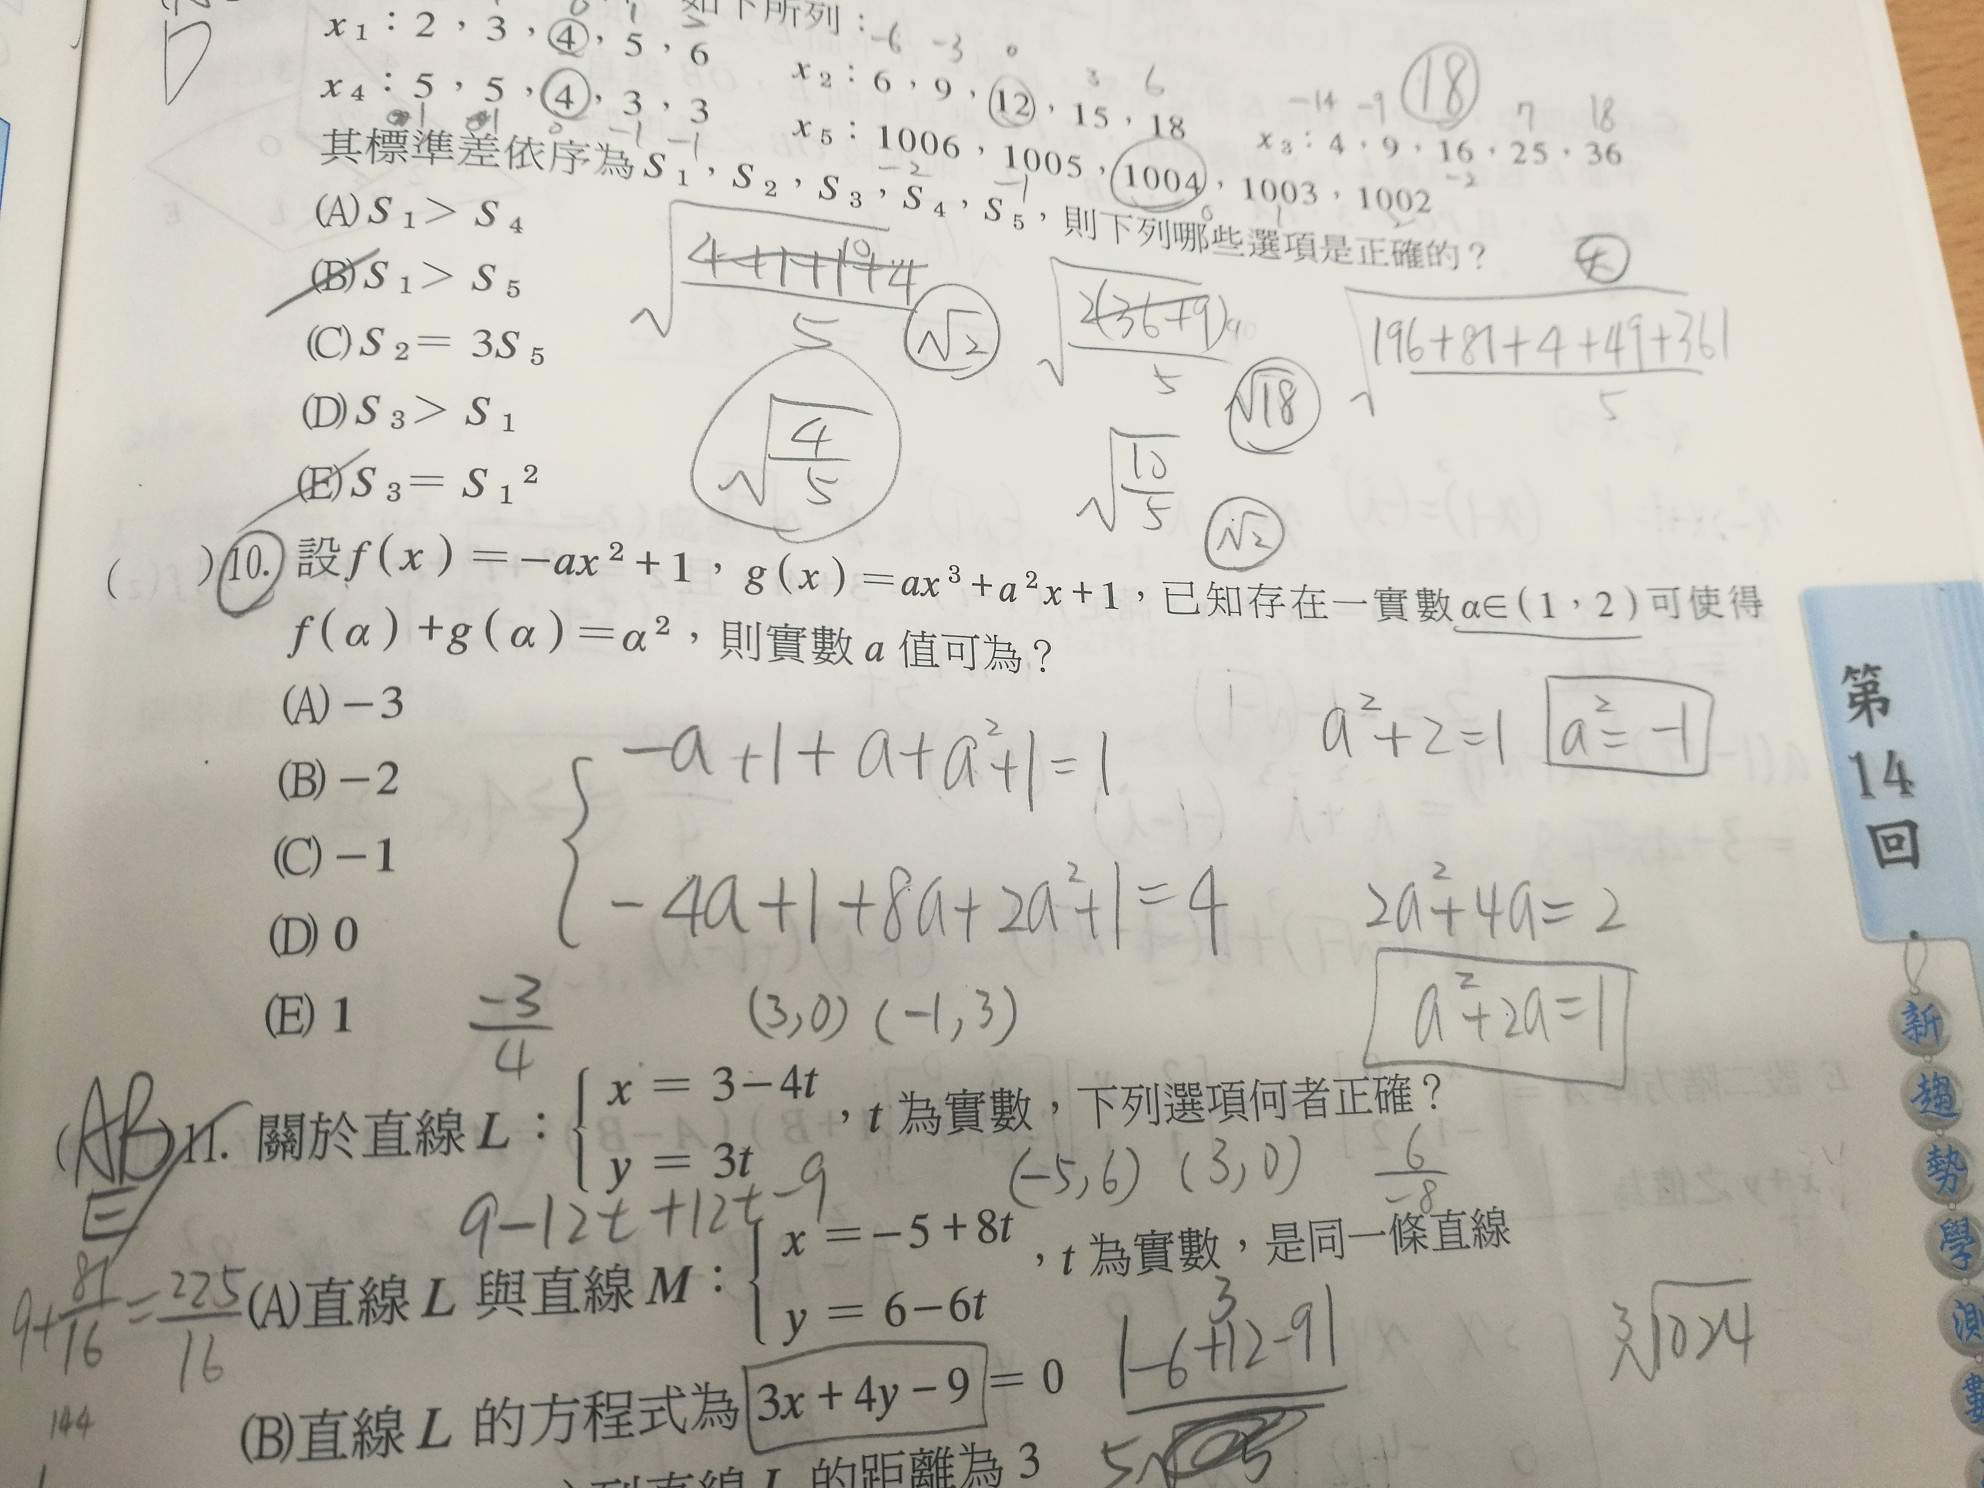 如下所列：
x₁：2，3，4，5，6
-6 -3 0 3 6
x₂：6，9，12，15，18
18
-14 -9 7 18
x₃：4，9，16，25，36
x₄：5，5，4，3，3
x₅：1006，1005，1004，1003，1002
其標準差依序為S₁，S₂，S₃，S₄，S₅，則下列哪些選項是正確的？
(A) S₁> S₄
(B) S₁> S₅
(C) S₂= 3S₅
(D) S₃> S₁
(E) S₃= S₁²
√2
√(4/5)
√18
√(10/5)
√2
√((196+81+4+49+361)/5)
大
( )10. 設f(x)=-ax²+1，g(x)=ax³+a²x+1，已知存在一實數α∈(1，2)可使得
f(α)+g(α)=α²，則實數a值可為？
(A) -3
(B) -2
(C) -1
(D) 0
(E) 1
-a+1+a+a²+1=1
a²+2=1
a²=-1
-4a+1+8a+2a²+1=4
2a²+4a=2
a²+2a=1
-3/4
(3,0) (-1,3)
(ABE)11. 關於直線L：{x = 3-4t
y = 3t，t為實數，下列選項何者正確？
9-12t+12t-9
(-5,6) (3,0) 6/-8
(A)直線L與直線M：{x =-5+8t
y = 6-6t，t為實數，是同一條直線
9+81/16=225/16
144
(B)直線L的方程式為3x+4y-9= 0
|-6+12-9|
3
5
³√1024
到直線L的距離為3
第14回
新趨勢學測數